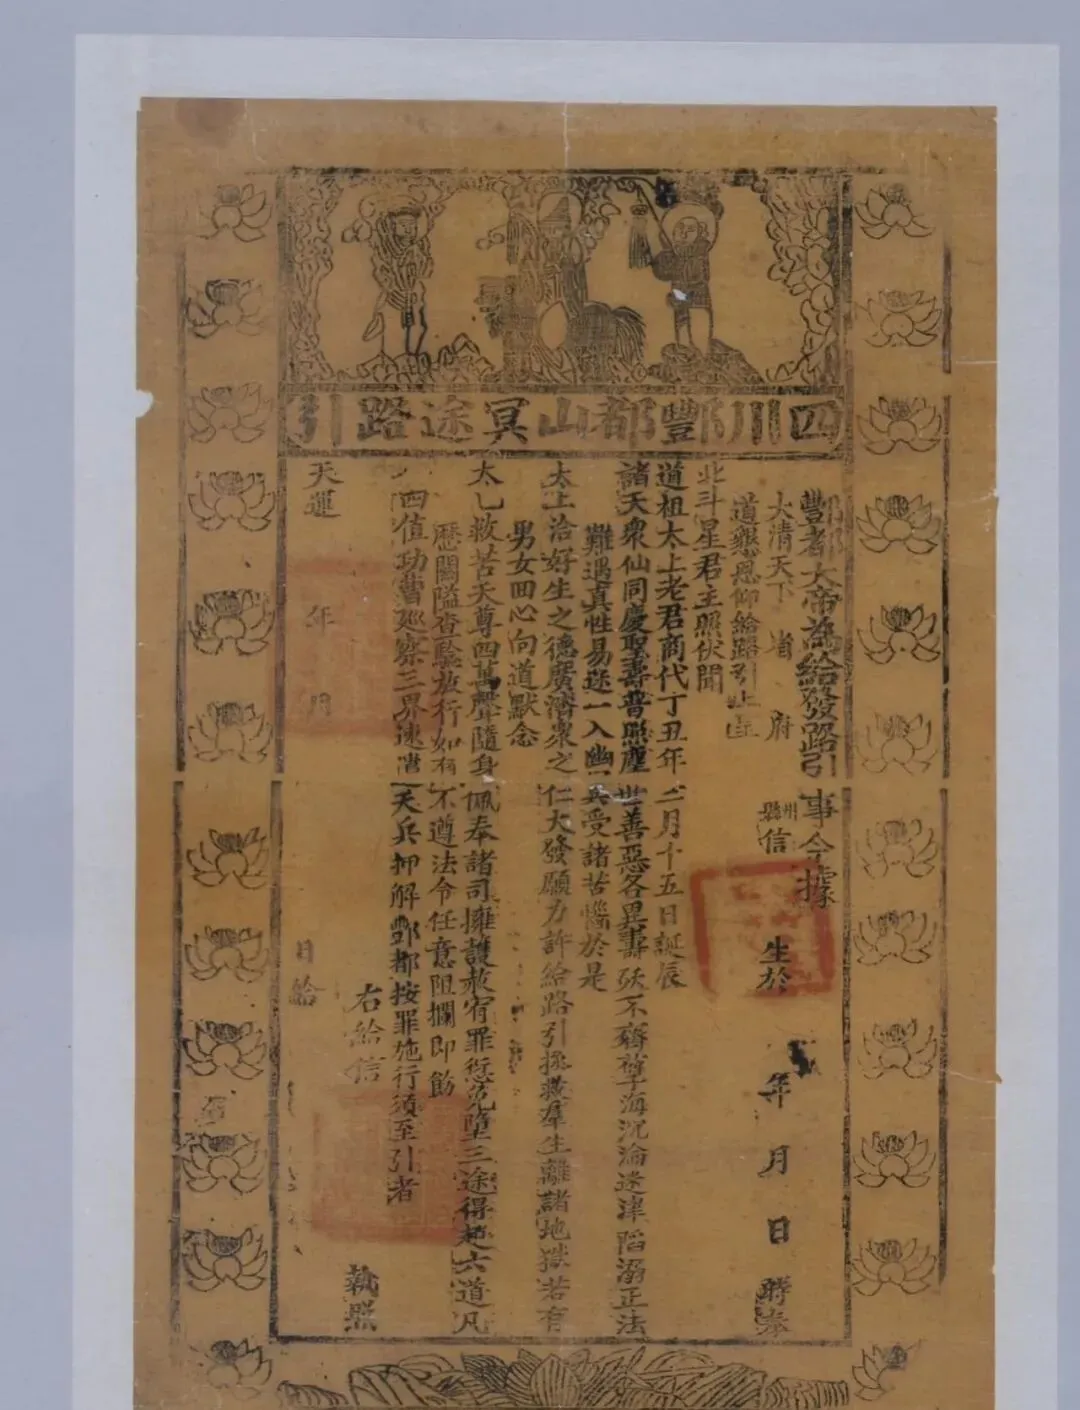 四川酆都山冥途路引
酆都大帝為給發路引事今據
大清天下 省 府 州縣信 生於 年 月 日 時奉
道懇恩仰給路引
北斗星君主照伏聞
道祖太上老君商代丁丑年二月十五日誕辰
諸天衆仙同慶聖壽普照塵世善惡各異壽殀不齊孽海沉淪迷津陷溺正法
難遇真性易迷一入幽冥受諸苦惱於是
太上洽好生之德廣濟衆之仁大發願力許給路引拯救羣生離諸地獄若有
男女回心向道默念
太乙救苦天尊四萬聲隨身佩奉諸司擁護赦宥罪愆免墮三途得超六道凡
歷關隘查驗放行如有不遵法令任意阻攔即飭
四值功曹巡察三界速 天兵押解酆都按罪施行須至引者
右給信 執照
天運 年 月 日給